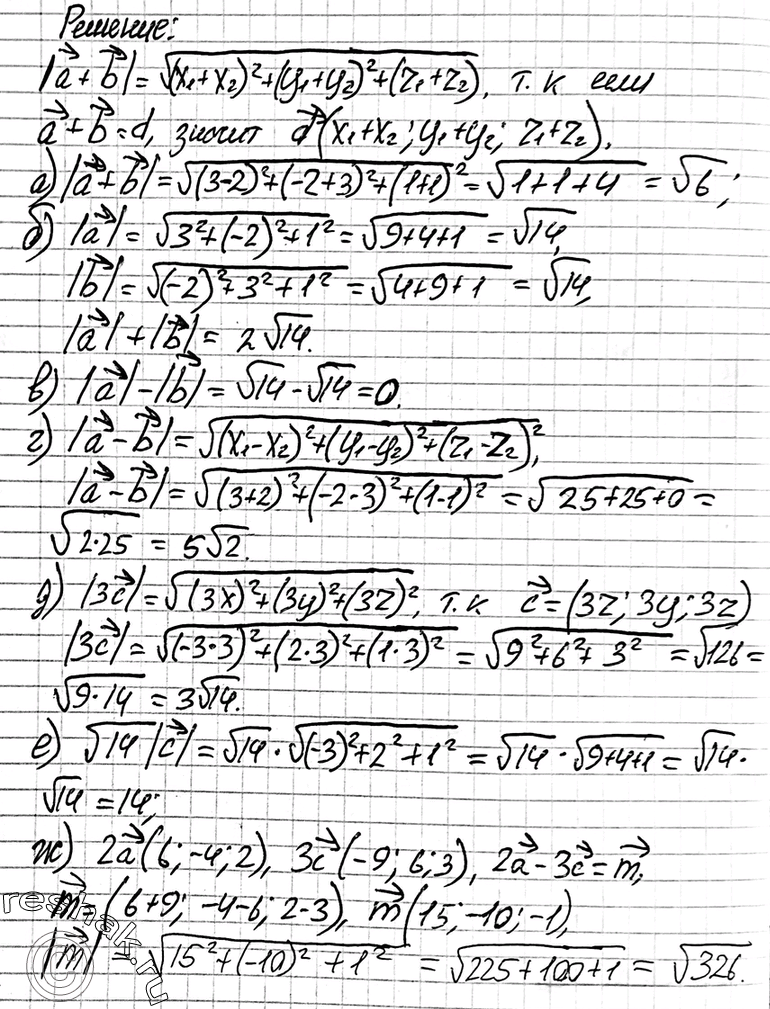 Решение:
|a⃗+b⃗|=√((x₁+x₂)²+(y₁+y₂)²+(z₁+z₂)), т.к если
a⃗+b⃗=d, значит d⃗(x₁+x₂; y₁+y₂; z₁+z₂).
а) |a⃗+b⃗|=√((3-2)²+(-2+3)²+(1+1)²)=√(1+1+4)=√6;
б) |a⃗|=√(3²+(-2)²+1²)=√(9+4+1)=√14,
|b⃗|=√((-2)²+3²+1²)=√(4+9+1)=√14,
|a⃗|+|b⃗|=2√14.
в) |a⃗|-|b⃗|=√14-√14=0.
г) |a⃗-b⃗|=√((x₁-x₂)²+(y₁-y₂)²+(z₁-z₂)²),
|a⃗-b⃗|=√((3+2)²+(-2-3)²+(1-1)²)=√(25+25+0)=
√(2·25)=5√2.
д) |3c⃗|=√((3x)²+(3y)²+(3z)²), т.к c⃗=(3z; 3y; 3z)
|3c⃗|=√((-3·3)²+(2·3)²+(1·3)²)=√(9²+6²+3²)=√126=
√(9·14)=3√14.
е) √14|c⃗|=√14·√((-3)²+2²+1²)=√14·√(9+4+1)=√14·
√14=14;
ж) 2a⃗(6;-4;2), 3c⃗(-9;6;3), 2a⃗-3c⃗=m⃗,
m⃗=(6+9; -4-6; 2-3), m⃗(15;-10;-1),
|m⃗|=√(15²+(-10)²+1²)=√(225+100+1)=√326.
reshak.ru